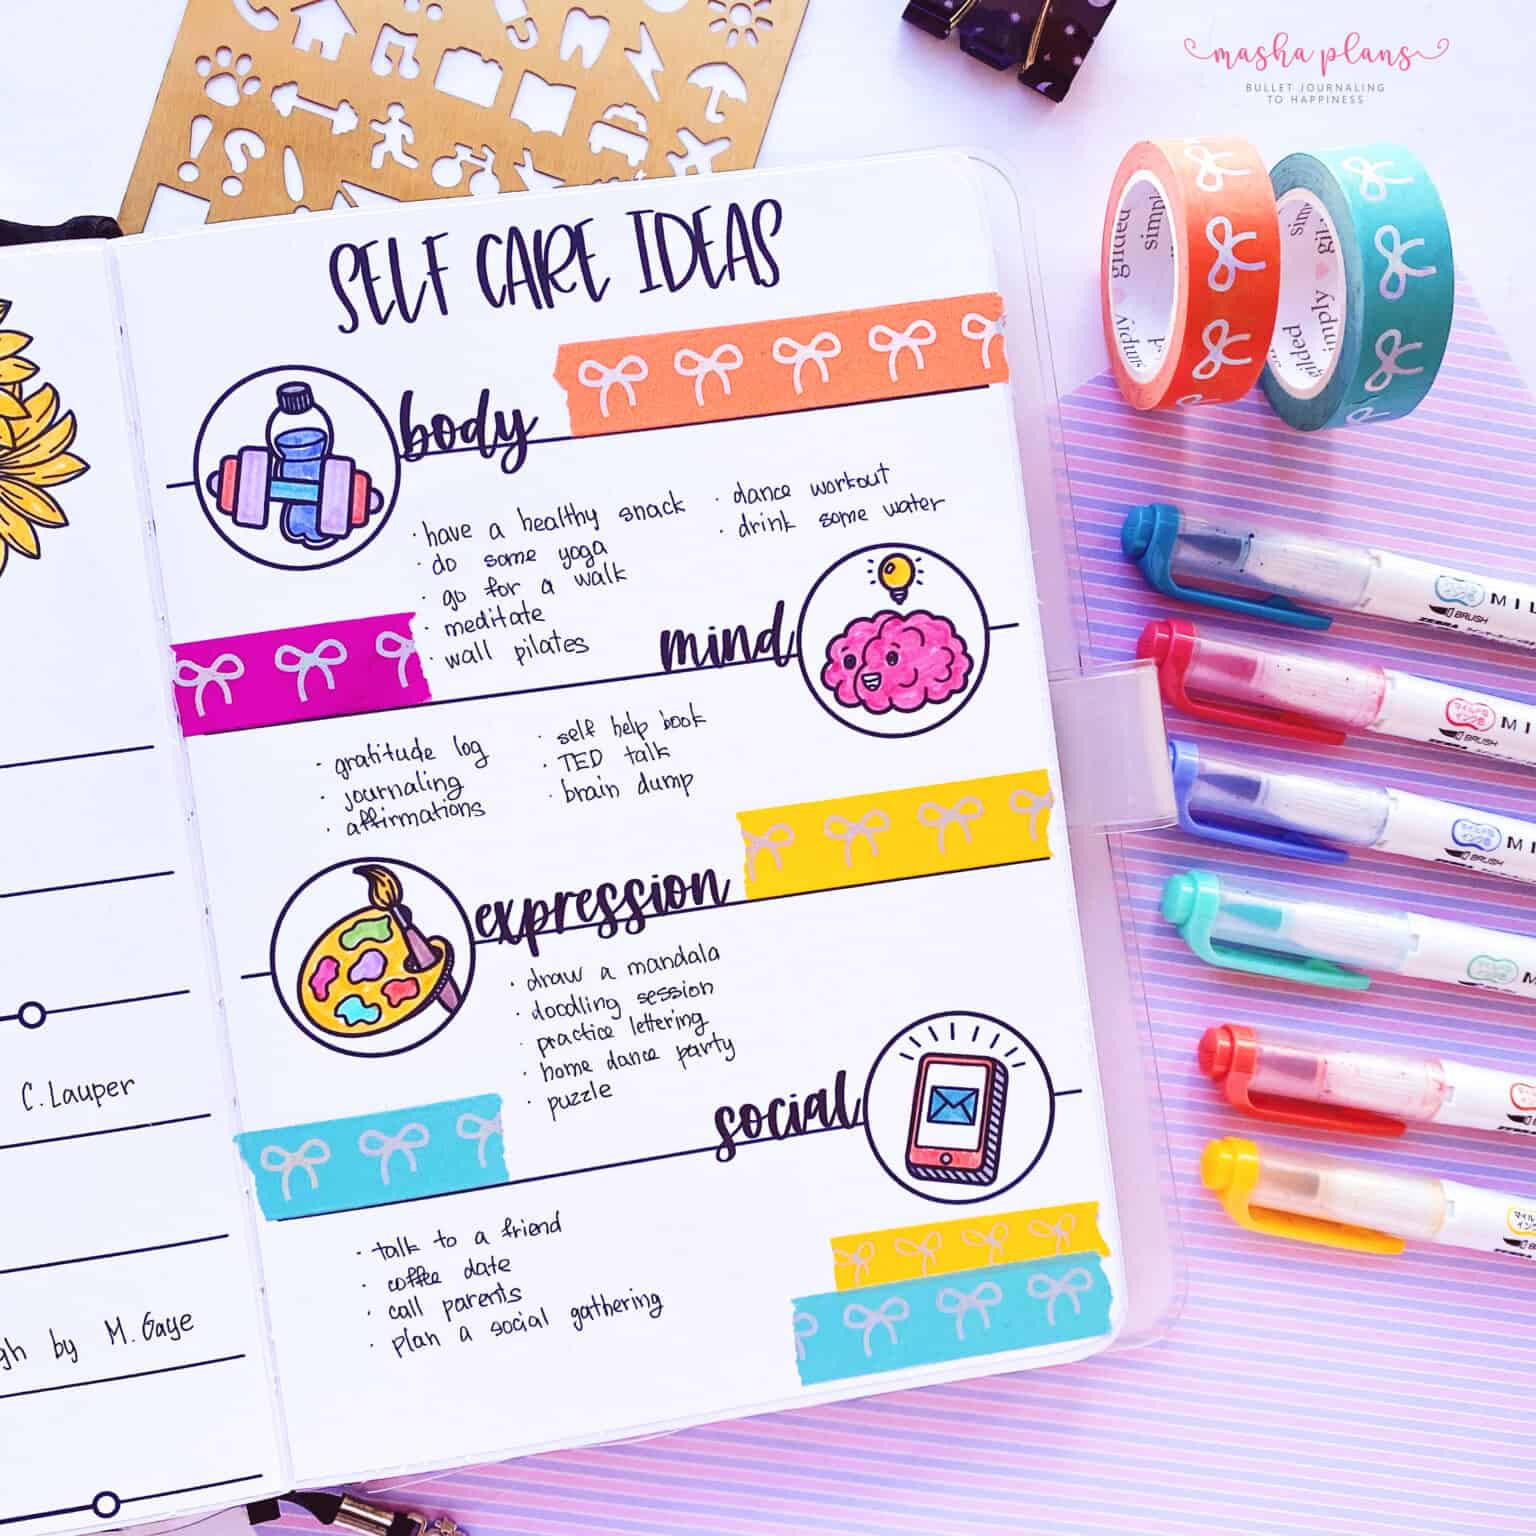 masha plans
BULLET JOURNALING
TO HAPPINESS
SELF CARE IDEAS
body
· have a healthy snack
· do some yoga
· go for a walk
· meditate
· wall pilates
· dance workout
· drink some water
mind
· gratitude log
· journaling
· affirmations
· self help book
· TED talk
· brain dump
expression
· draw a mandala
· doodling session
· practice lettering
· home dance party
· puzzle
social
· talk to a friend
· coffee date
· call parents
· plan a social gathering
C. Lauper
by M. Gaye
simply
gilded
simply
gilded
BRUSH
ZEBRA
BRUSH
BRUSH